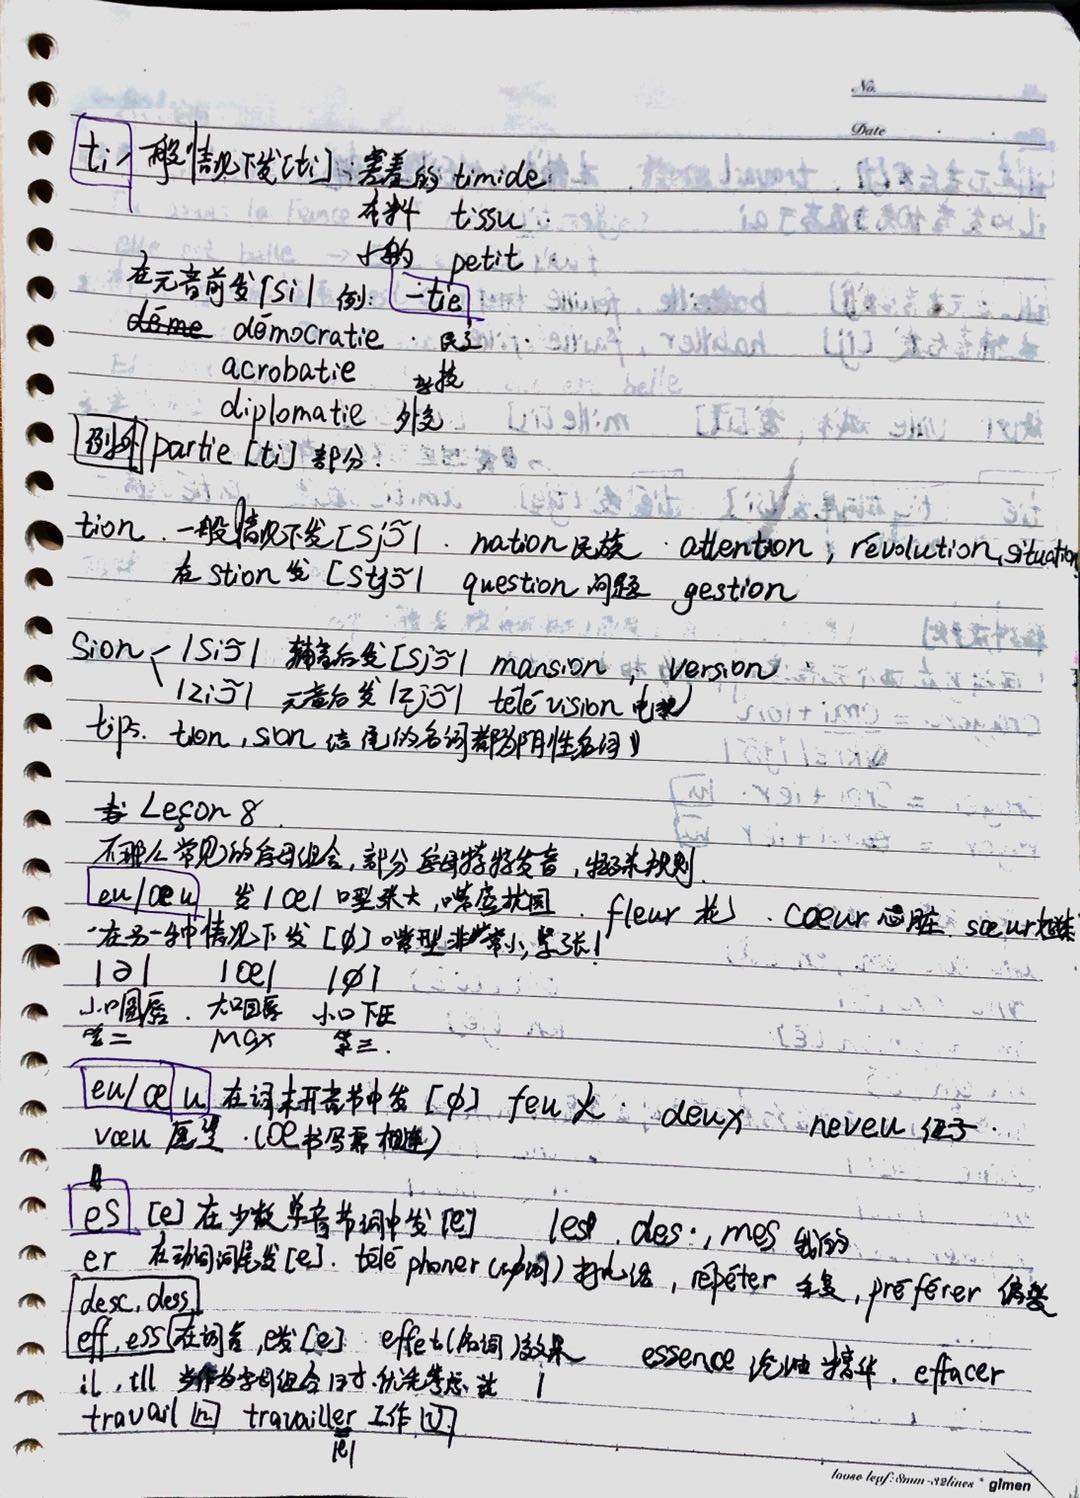 No.
Date
ti 一般情况下发[ti]: 害羞的 timide
布料 tissu
小的 petit
在元音前发[si] 例: -tie
déme démocratie 民主
acrobatie 杂技
diplomatie 外交
例外 partie [ti] 部分.
tion. 一般情况下发[sjɔ̃]. nation 民族 attention, révolution, situation
在 stion 发 [stjɔ̃] question 问题 gestion
sion [siɔ̃] 辅音后发[sjɔ̃] mansion, version
[ziɔ̃] 元音后发[zjɔ̃] télévision 电视
tips. tion, sion 结尾的名词都为阴性名词
Leçon 8
不那么常见的字母组合,部分字母特殊发音,特殊规则.
eu/œu 发[œ] 口型张大,嘴唇拢圆. fleur 花. cœur 心脏. sœur 姐妹
在另一种情况下发[ø] 嘴型非常小,紧张!
[ə] [œ] [ø]
小口圆唇. 大口圆唇 小口下压
第二 max 第三.
eu/œu 在词末开音节中发[ø] feu 火. deux neveu 侄子.
vœu 愿望.(œ书写需相连)
es [e] 在少数单音节词中发[e] les, des, mes 我的
er 在动词词尾发[e]. téléphoner (动词) 打电话, répéter 重复, préférer 偏爱
desc, dess
eff, ess 在词首, e发[e] effet(名词)效果 essence 汽油 精华. effacer
il, ill 当作为字母组合时优先考虑
travail [n] travailler 工作 [v]
[e]
loose leaf: 8mm-32lines * glmen